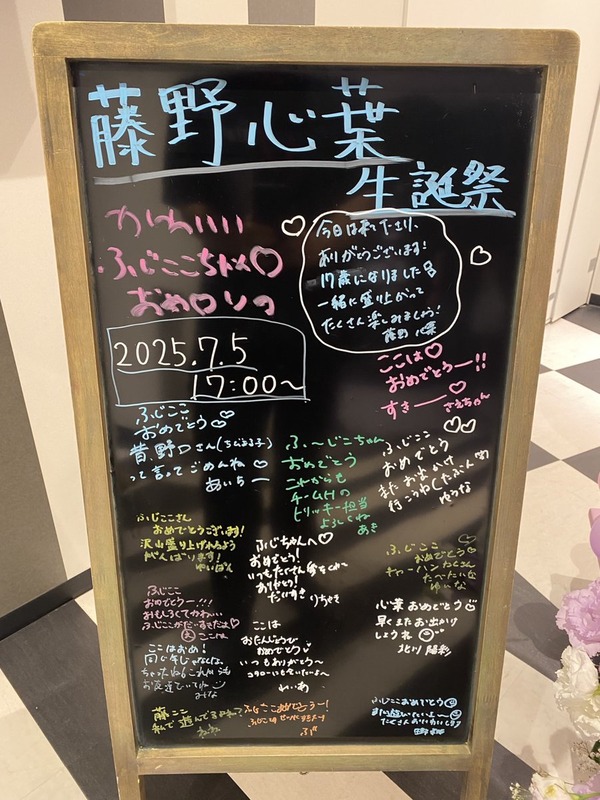 藤野心葉
生誕祭
かわいい
ふじここちゃん♡
おめ♡
今日は来てくださり、
ありがとうございます!
17歳になりました
一緒に盛り上がって
たくさん楽しみましょう!
藤野心葉
2025.7.5
17:00~
ここは♡
おめでとうー!!
すきー♡
さえちゃん
ふじここ
おめでとう♡
って言ってごめんね♡
あいちー
ふ〜じこちゃん
おめでとう
これからも
チームHの
トリッキー担当
よろしくね
あき
ふじここ
おめでとう
またおでかけ
行こうね
ゆうな
ふじここさん
おめでとうございます!
沢山盛り上げれるよう
がんばります!
ゆいぽん
ふじちゃんへ♡
おめでとう!
いつもたくさん
ありがとう!
だいすき
りちゃき
ふじここ
おめでとう♡
チャーハンたくさん
たべたいな
ゆいな
ふじここ
おめでとうー!!!
おもしろくてかわいい
ふじここがだいすきだよ♡
ここは
おたんじょうび
おめでとう
いつもありがとう〜
心葉おめでとう
早くまたお出かけ
しようね
北川陽彩
ここはおめ!
みな
藤ここ
私で遊んでるよね?
ねね
ふじここおめでとうー!
ふじここおめでとう